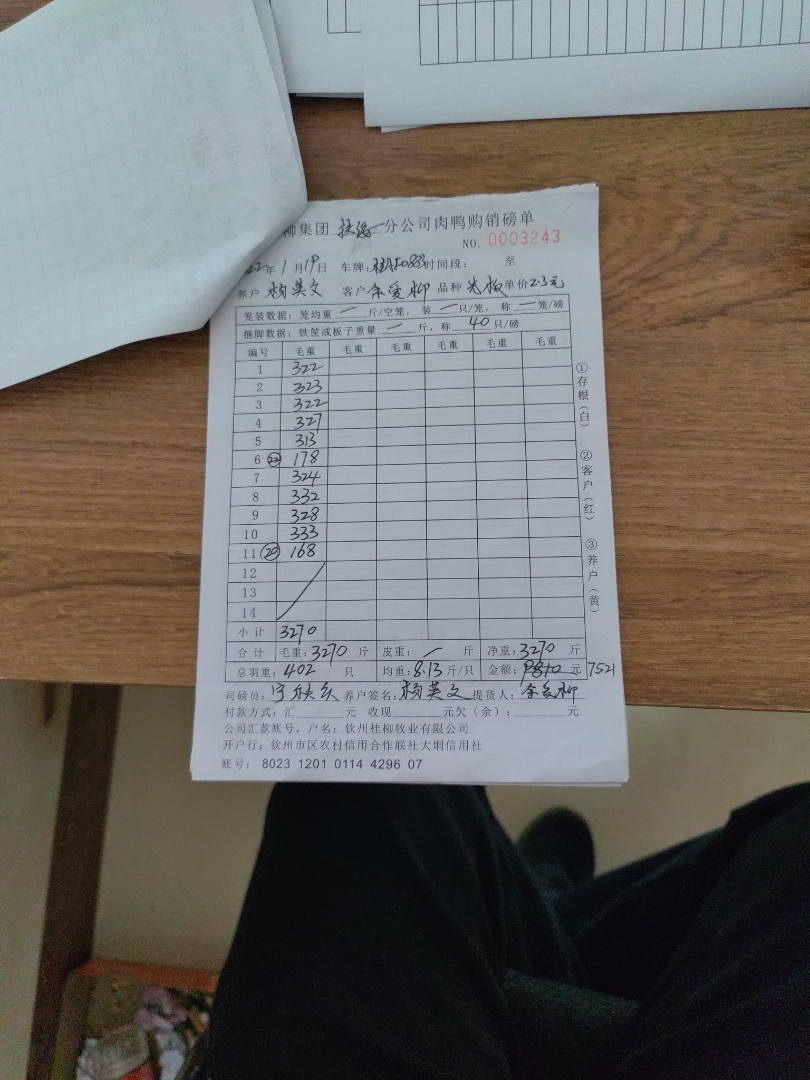 柳集团 分公司肉鸭购销磅单
NO. 0003243
22年1月19日 车牌: 时间段: 至
养户 杨英文 客户 余爱柳 品种 单价2.3元
笼装数据: 笼均重 一 斤/空笼, 装 一 只/笼, 称 一 笼/磅
捆脚数据: 铁筐或板子重量 一 斤, 称 40 只/磅
编号 毛重 毛重 毛重 毛重 毛重 毛重
1 322
2 323
3 322
4 327
5 313
6 22 178
7 324
8 332
9 328
10 333
11 20 168
12
13
14
小计 3270
合计 毛重: 3270 斤 皮重: 一 斤 净重: 3270 斤
总羽重: 402 只 均重: 8.13 斤/只 金额: 元 7521
司磅员: 养户签名: 杨英文 提货人: 余爱柳
付款方式: 汇 元 收现 元欠(余): 元
公司汇款账号, 户名: 钦州桂柳牧业有限公司
开户行: 钦州市区农村信用合作联社大垌信用社
账号: 8023 1201 0114 4296 07
①存根(白)
②客户(红)
③养户(黄)